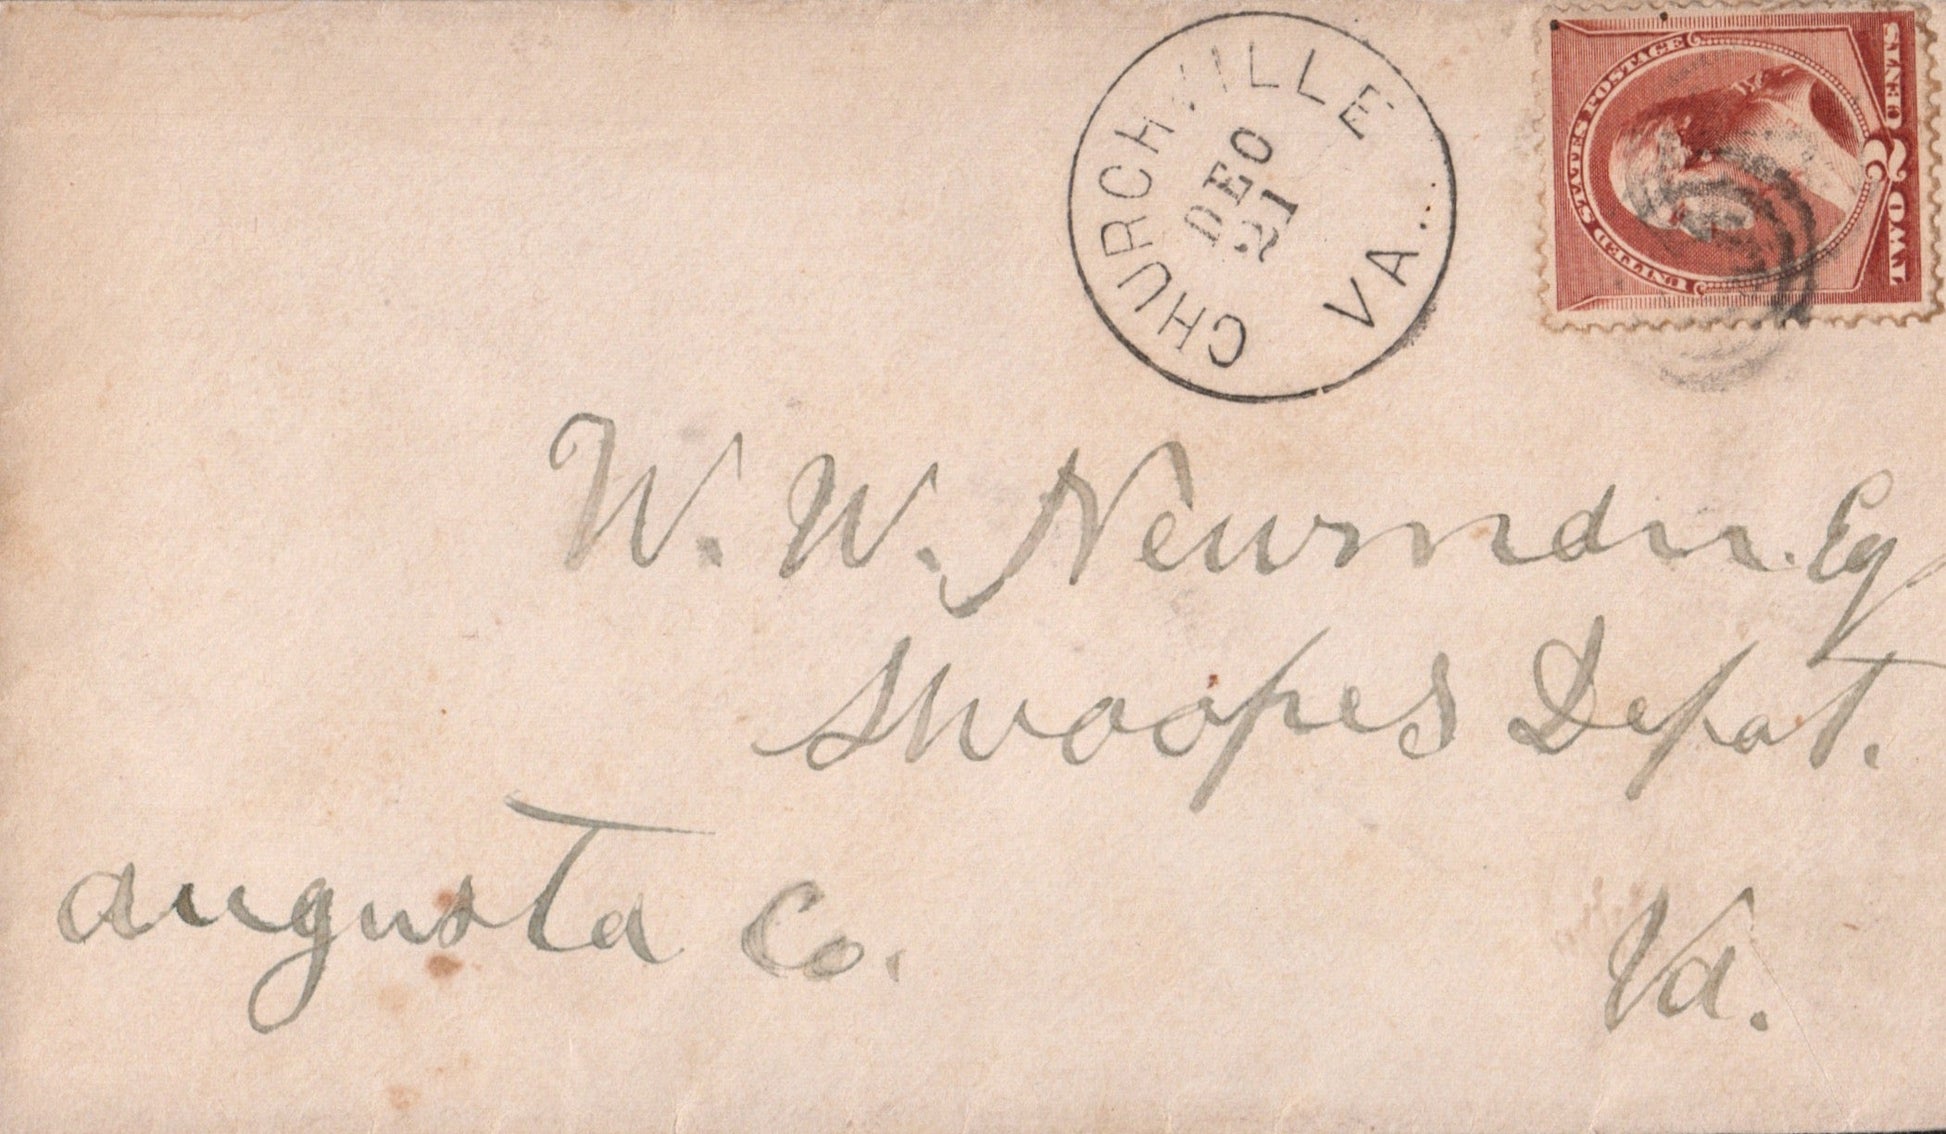 CHURCHVILLE VA.
DEC
21
UNITED STATES POSTAGE
TWO 2 CENTS
W. W. Newman. Esq
Swoopes Depot.
Augusta Co. Va.